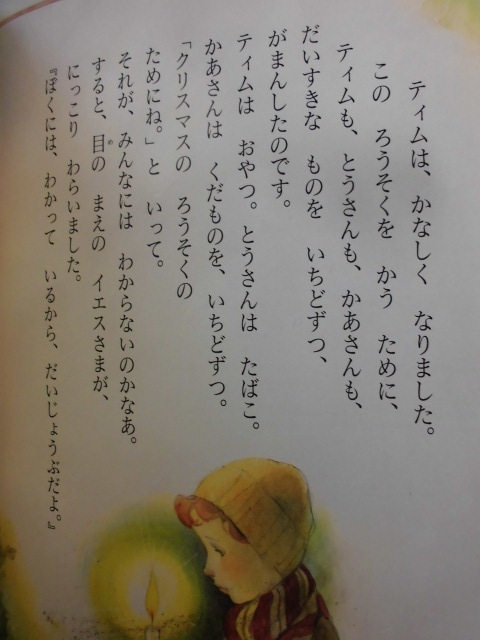 ティムは、かなしく なりました。
この ろうそくを かう ために、
ティムも、とうさんも、かあさんも、
だいすきな ものを いちどずつ、
がまんしたのです。
ティムは おやつ。とうさんは たばこ。
かあさんは くだものを、いちどずつ。
「クリスマスの ろうそくの
ためにね。」と いって。
それが、みんなには わからないのかなあ。
すると、目の まえの イエスさまが、
にっこり わらいました。
『ぼくには、わかって いるから、だいじょうぶだよ。』